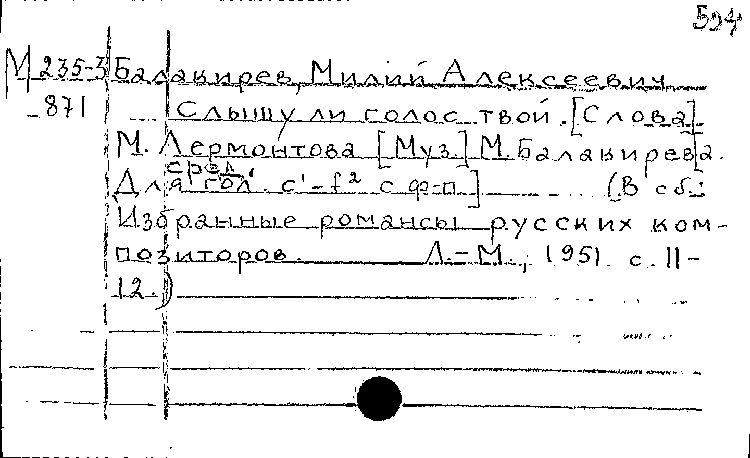 594
М 235-3 Балакирев, Милий Алексеевич
871 Слышу ли голос твой. [Слова]
М. Лермонтова [Муз.] М. Балакирева.
сред.
Для гол. c'-f² с ф-п.] (В сб.:
Избранные романсы русских ком-
позиторов. Л.-М., 1951. с. 11-
12.)